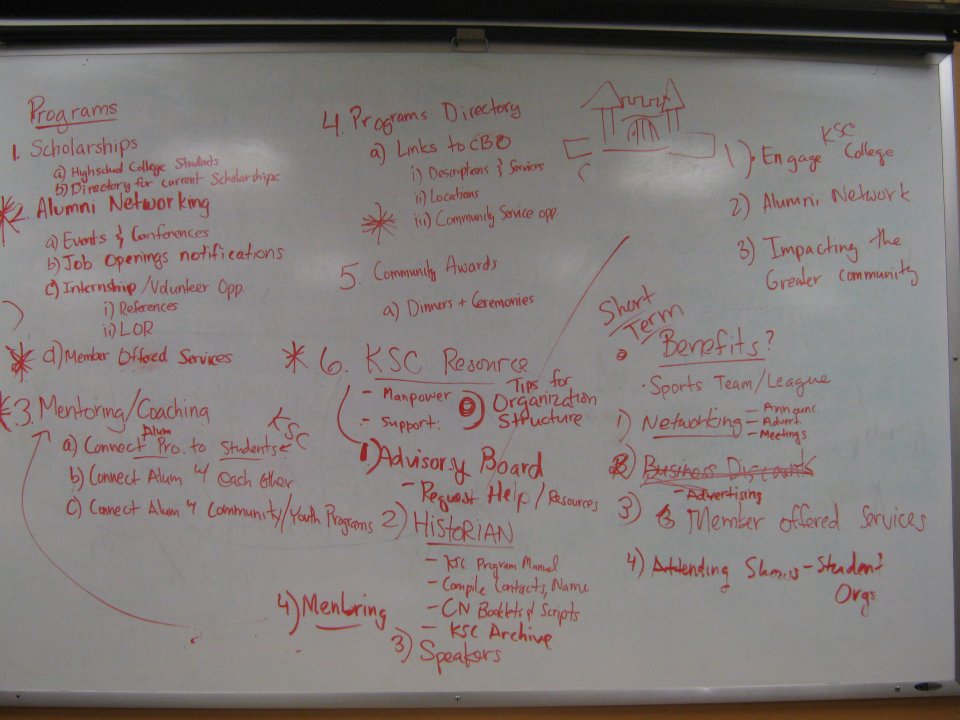 Programs
1. Scholarships
a) Highschool College Students
b) Directory for current Scholarships
2. Alumni Networking
a) Events & Conferences
b) Job Openings notifications
c) Internship/Volunteer Opp.
i) References
ii) LOR
d) Member Offered Services
3. Mentoring/Coaching
KSC
Alum
a) Connect Pro. to Students
b) Connect Alum w/ each other
c) Connect Alum w/ Community/Youth Programs
4. Programs Directory
a) Links to CBO
i) Descriptions & Services
ii) Locations
iii) Community Service opp
5. Community Awards
a) Dinners + Ceremonies
6. KSC Resource
- Manpower
- Support:
0) Tips for
Organization
Structure
1) Advisory Board
- Request Help/Resources
2) HISTORIAN
- KSC Program Manual
- Compile Contacts, Name
- CN Booklets & Scripts
- KSC Archive
3) Speakers
4) Mentoring
KSC
1) Engage College
2) Alumni Network
3) Impacting the
Greater community
Short
Term
Benefits?
· Sports Team/League
1) Networking - Announc.
- Advert.
- Meetings
2) Business Discounts
- Advertising
3) Member offered Services
4) Attending Shows - Student
Orgs